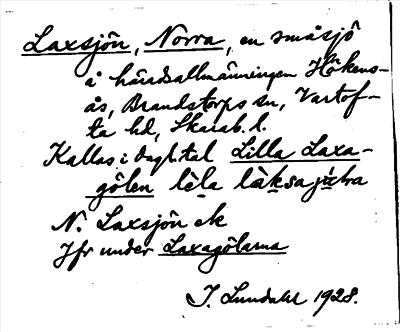 Laxsjön, Norra, en småsjö
å häradsallmänningen Hökens-
ås, Brandstorps sn, Vartof-
ta hd, Skarab. l.
Kallas i dagl. tal Lilla Laxa-
gölen lɩla
N. Laxsjön ek
Jfr under Laxagölarna
J. Lundahl 1928.